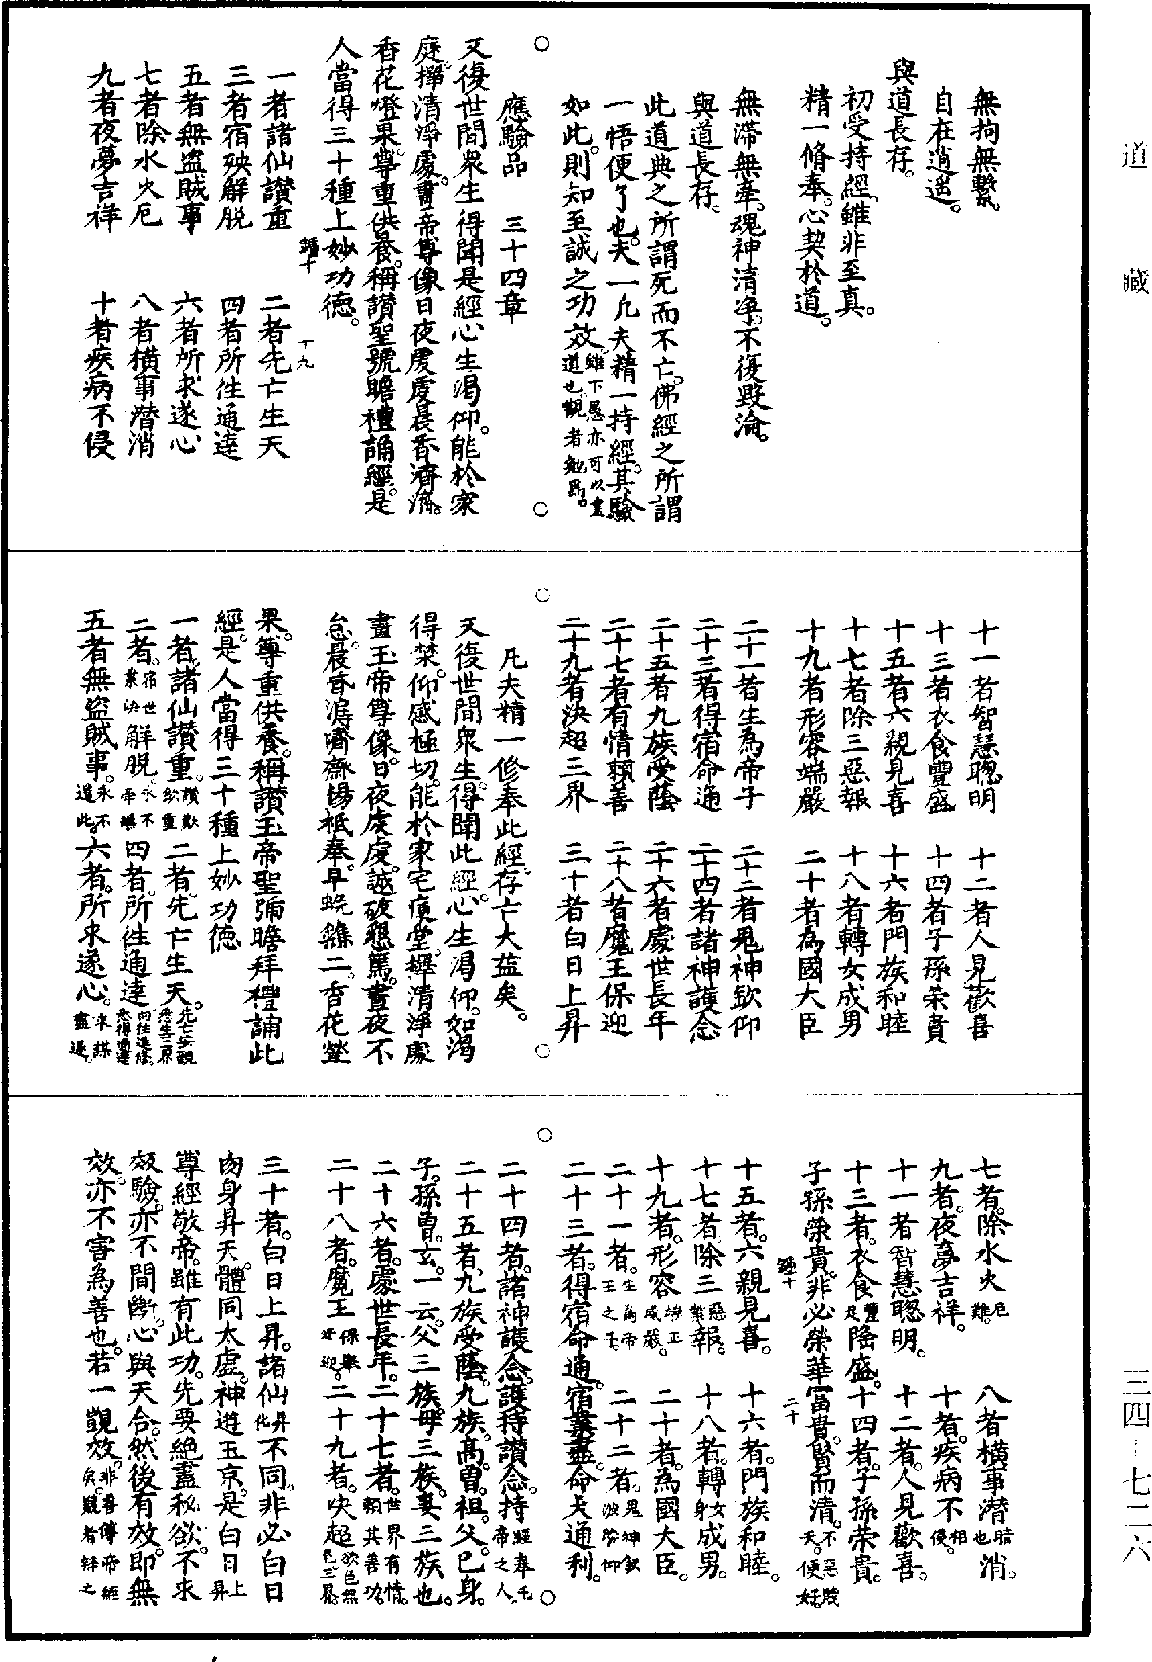 道藏
三四—七二六
無拘無繫。
自在逍遥。
與道長存。
初受持經。雖非至真。
精一脩奉。心契於道。
無滯無牽。魂神清淨。不復毁淪。
與道長存。
此道典之所謂死而不亡。佛經之所謂
一悟便了也。夫一凡夫精一持經。其驗
如此。則知至誠之功效。雖下愚亦可以盡道也。觀者勉焉。
應驗品　三十四章
又復世間衆生得聞是經。心生渴仰。能於家
庭。擇清淨處。畫帝尊像。日夜虔虔。晨昏濟濟。
香花燈果。尊重供養。稱讃聖號。瞻禮誦經。是
人當得三十種上妙功德。
十九
一者諸仙讃重　二者先亡生天
三者宿殃解脱　四者所往通達
五者無盜賊事　六者所求遂心
七者除水火厄　八者横事潜消
九者夜夢吉祥　十者疾病不侵
十一者智慧聰明　十二者人見歡喜
十三者衣食豐盛　十四者子孫榮貴
十五者六親見喜　十六者門族和睦
十七者除三惡報　十八者轉女成男
十九者形容端嚴　二十者為國大臣
二十一者生為帝子　二十二者鬼神欽仰
二十三者得宿命通　二十四者諸神護念
二十五者九族受蔭　二十六者處世長年
二十七者有情賴善　二十八者魔王保迎
二十九者決超三界　三十者白日上昇
凡夫精一修奉此經。存亡大益矣。
又復世間衆生。得聞此經。心生渴仰。如渴
得漿。仰感極切。能於家宅廣堂。擇清淨處
畫玉帝尊像。日夜虔虔。誠破懇篤。晝夜不
怠。晨昏濟濟。齋惕袛奉。早晚雜二。香花燈
果。尊重供養。稱讃玉帝聖號。瞻拜禮誦此
經。是人當得三十種上妙功德
一者。諸仙讃重。讃歎欽重 二者。先亡生天。
二者。宿世業決解脱。永不牽纏 四者。所往通達
五者無盜賊事。永不遭此。六者。所求遂心。求謀盡遂。
七者。除水火厄難。　八者横事潜暗也消。
九者。夜夢吉祥。　十者。疾病不相侵。
十一者智慧聰明。　十二者。人見歡喜。
十三者。衣食豐足隆盛。十四者。子孫榮貴。
子孫榮貴。非必榮華富貴。貧而清。不惡賤夭。便好。
二十
十五者。六親見喜。　十六者。門族和睦。
十七者除三惡業報。　十八者。轉女身成男。
十九者。形容端正威嚴。　二十者。為國大臣。
二十一者。生為帝王之子。　二十二者。鬼神欽
二十三者。得宿命通。宿業盡。命大通利。
二十四者。諸神護念。護持讃念。持經奉
二十五者。九族受蔭。九族。高。曾。祖。父。己身。
子。孫。曾。玄。一云。父三族。母三族。妻三族。也。
二十六者。處世長年。二十七者。世界有情。賴其善功。
二十八者。魔王保舉迎。二十九者。決超
三十者。白日上昇。諸仙昇化不同。非必白日
肉身昇天。體同太虛。神遊玉京。是白日上昇
尊經敬帝。雖有此功。先要絕盡私欲。不求
効驗。亦不間斷。心與天合。然後有效。即無
效。亦不害為善也。若一覬效。非善傳帝經矣。覬者辯之